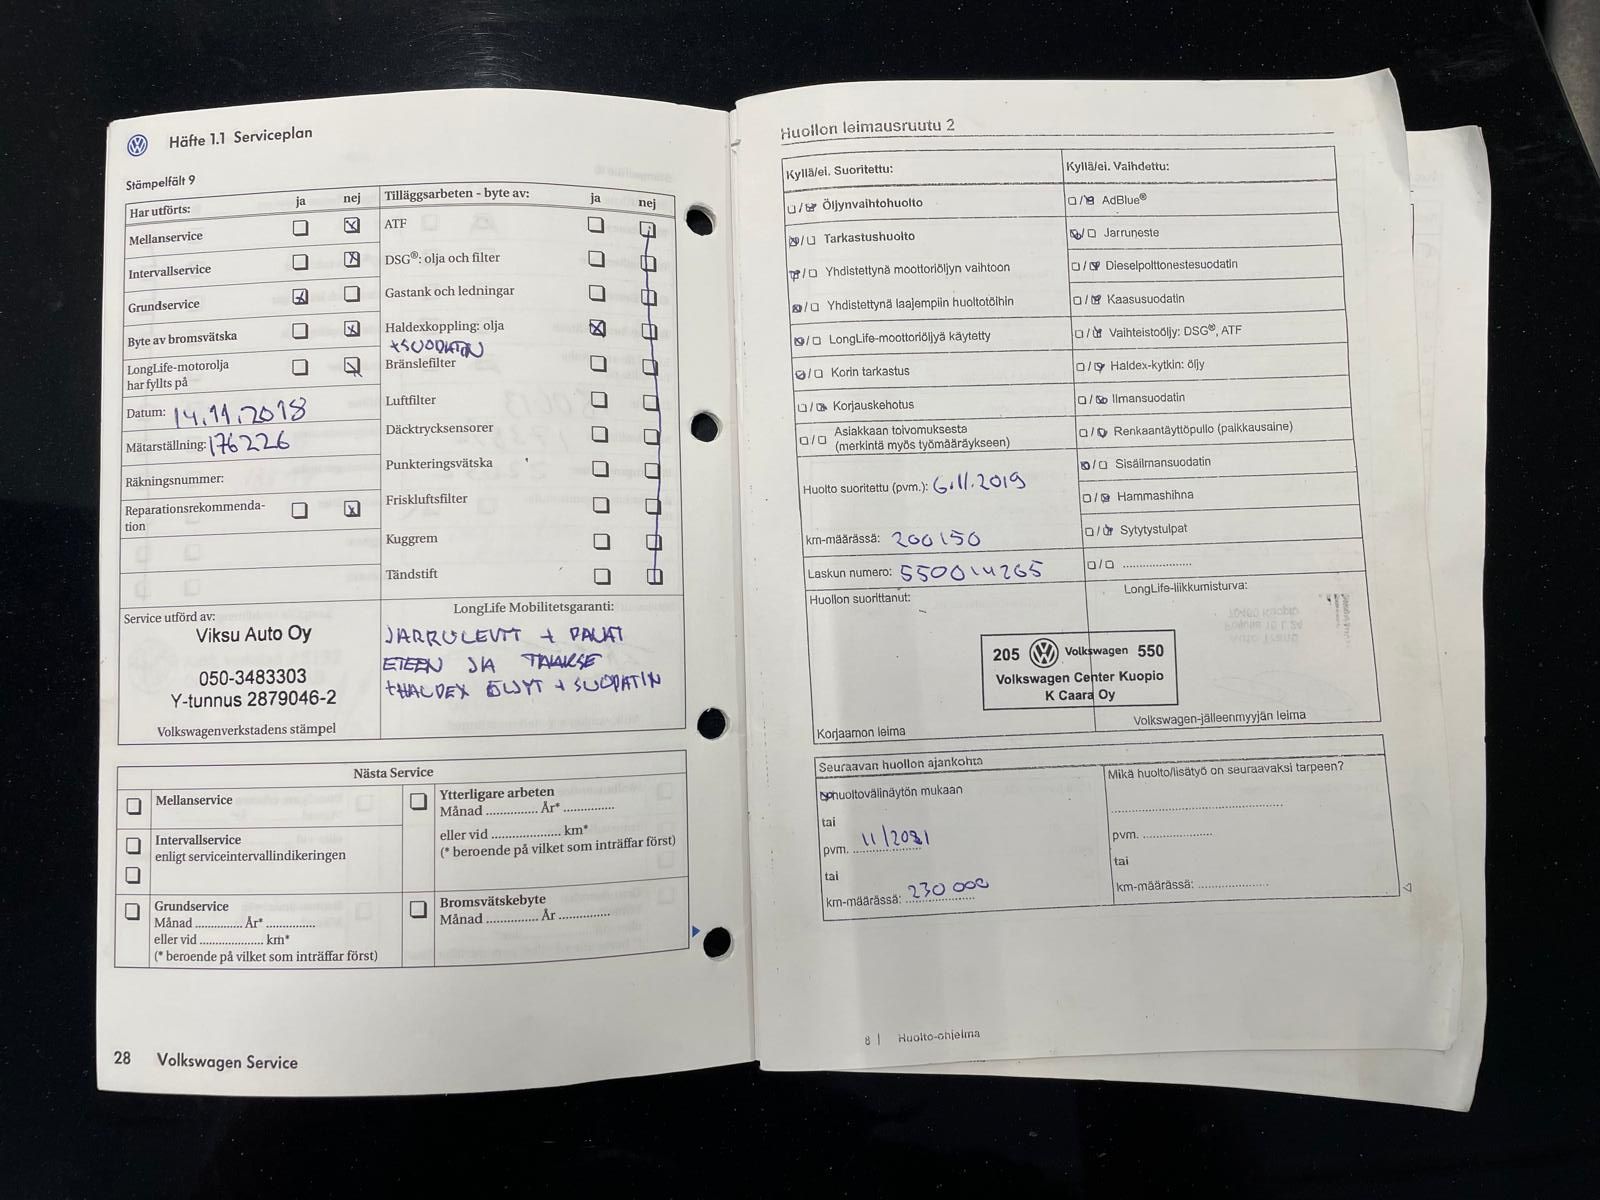 Häfte 1.1 Serviceplan
Stämpelfält 9
Har utförts: ja nej
Mellanservice
Intervallservice
Grundservice
Byte av bromsvätska
LongLife-motorolja
har fyllts på
Datum: 14.11.2018
Mätarställning: 176226
Räkningsnummer:
Reparationsrekommenda-
tion
Tilläggsarbeten - byte av: ja nej
ATF
DSG®: olja och filter
Gastank och ledningar
Haldexkoppling: olja
+SUODATIN
Bränslefilter
Luftfilter
Däcktrycksensorer
Punkteringsvätska
Friskluftsfilter
Kuggrem
Tändstift
Service utförd av:
Viksu Auto Oy
050-3483303
Y-tunnus 2879046-2
Volkswagenverkstadens stämpel
LongLife Mobilitetsgaranti:
JARRULEVYT + PALAT
ETEEN JA TAAKSE
+HALDEX ÖLJYT + SUODATIN
Nästa Service
Mellanservice
Intervallservice
enligt serviceintervallindikeringen
Grundservice
Månad .............. År* ..............
eller vid .................... km*
(* beroende på vilket som inträffar först)
Ytterligare arbeten
Månad .............. År* ..............
eller vid .................... km*
(* beroende på vilket som inträffar först)
Bromsvätskebyte
Månad .............. År ..............
28 Volkswagen Service
Huollon leimausruutu 2
Kyllä/ei. Suoritettu:
Öljynvaihtohuolto
Tarkastushuolto
Yhdistettynä moottoriöljyn vaihtoon
Yhdistettynä laajempiin huoltotöihin
LongLife-moottoriöljyä käytetty
Korin tarkastus
Korjauskehotus
Asiakkaan toivomuksesta
(merkintä myös työmääräykseen)
Huolto suoritettu (pvm.): 6.11.2019
km-määrässä: 200150
Laskun numero: 550014265
Huollon suorittanut:
Korjaamon leima
Kyllä/ei. Vaihdettu:
AdBlue®
Jarruneste
Dieselpolttonestesuodatin
Kaasusuodatin
Vaihteistoöljy: DSG®, ATF
Haldex-kytkin: öljy
Ilmansuodatin
Renkaantäyttöpullo (paikkausaine)
Sisäilmansuodatin
Hammashihna
Sytytystulpat
....................
LongLife-liikkumisturva:
205 Volkswagen 550
Volkswagen Center Kuopio
K Caara Oy
Volkswagen-jälleenmyyjän leima
Seuraavan huollon ajankohta
huoltovälinäytön mukaan
tai
pvm. 11/2021
tai
km-määrässä: 230 000
Mikä huolto/lisätyö on seuraavaksi tarpeen?
pvm. ....................
tai
km-määrässä: ....................
8 | Huolto-ohjelma